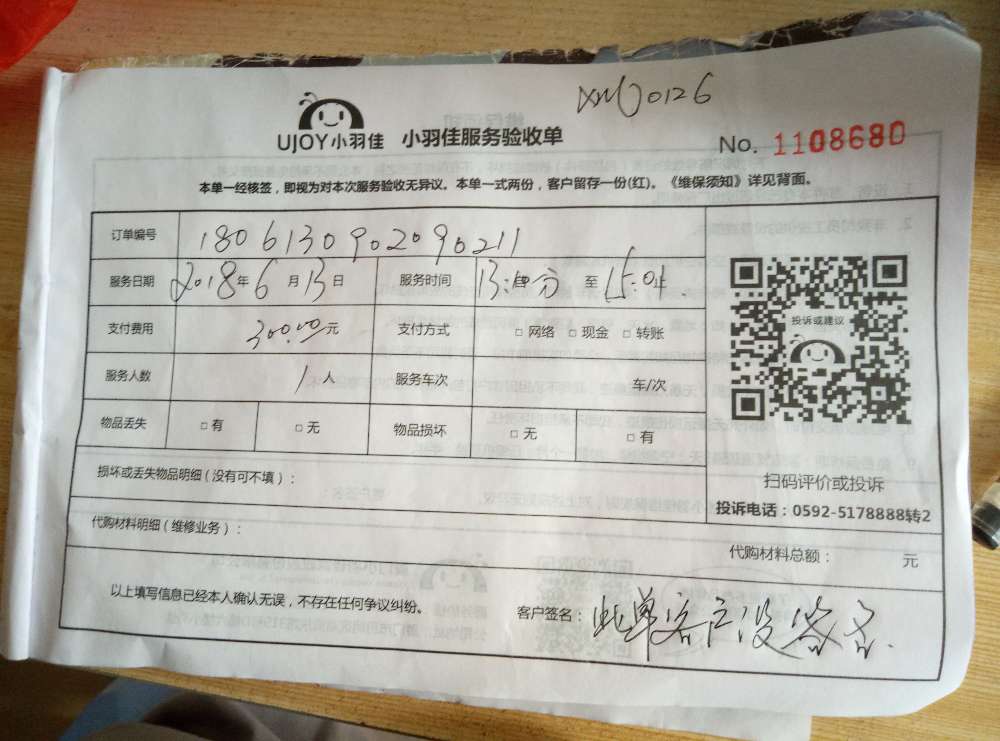 XMJ0126
UJOY小羽佳 小羽佳服务验收单
No. 1108680
本单一经核签，即视为对本次服务验收无异议。本单一式两份，客户留存一份(红)。《维保须知》详见背面。
订单编号 1806130902090211
服务日期 2018年6月13日 服务时间 13: 分 至 15:0
支付费用 300.00元 支付方式 □ 网络 □ 现金 □ 转账
投诉或建议
服务人数 1人 服务车次 车/次
物品丢失 □ 有 □ 无 物品损坏 □ 无 □ 有
损坏或丢失物品明细（没有可不填）：
扫码评价或投诉
投诉电话：0592-5178888转2
代购材料明细（维修业务）：
代购材料总额： 元
以上填写信息已经本人确认无误，不存在任何争议纠纷。
客户签名：此单客户没签名.